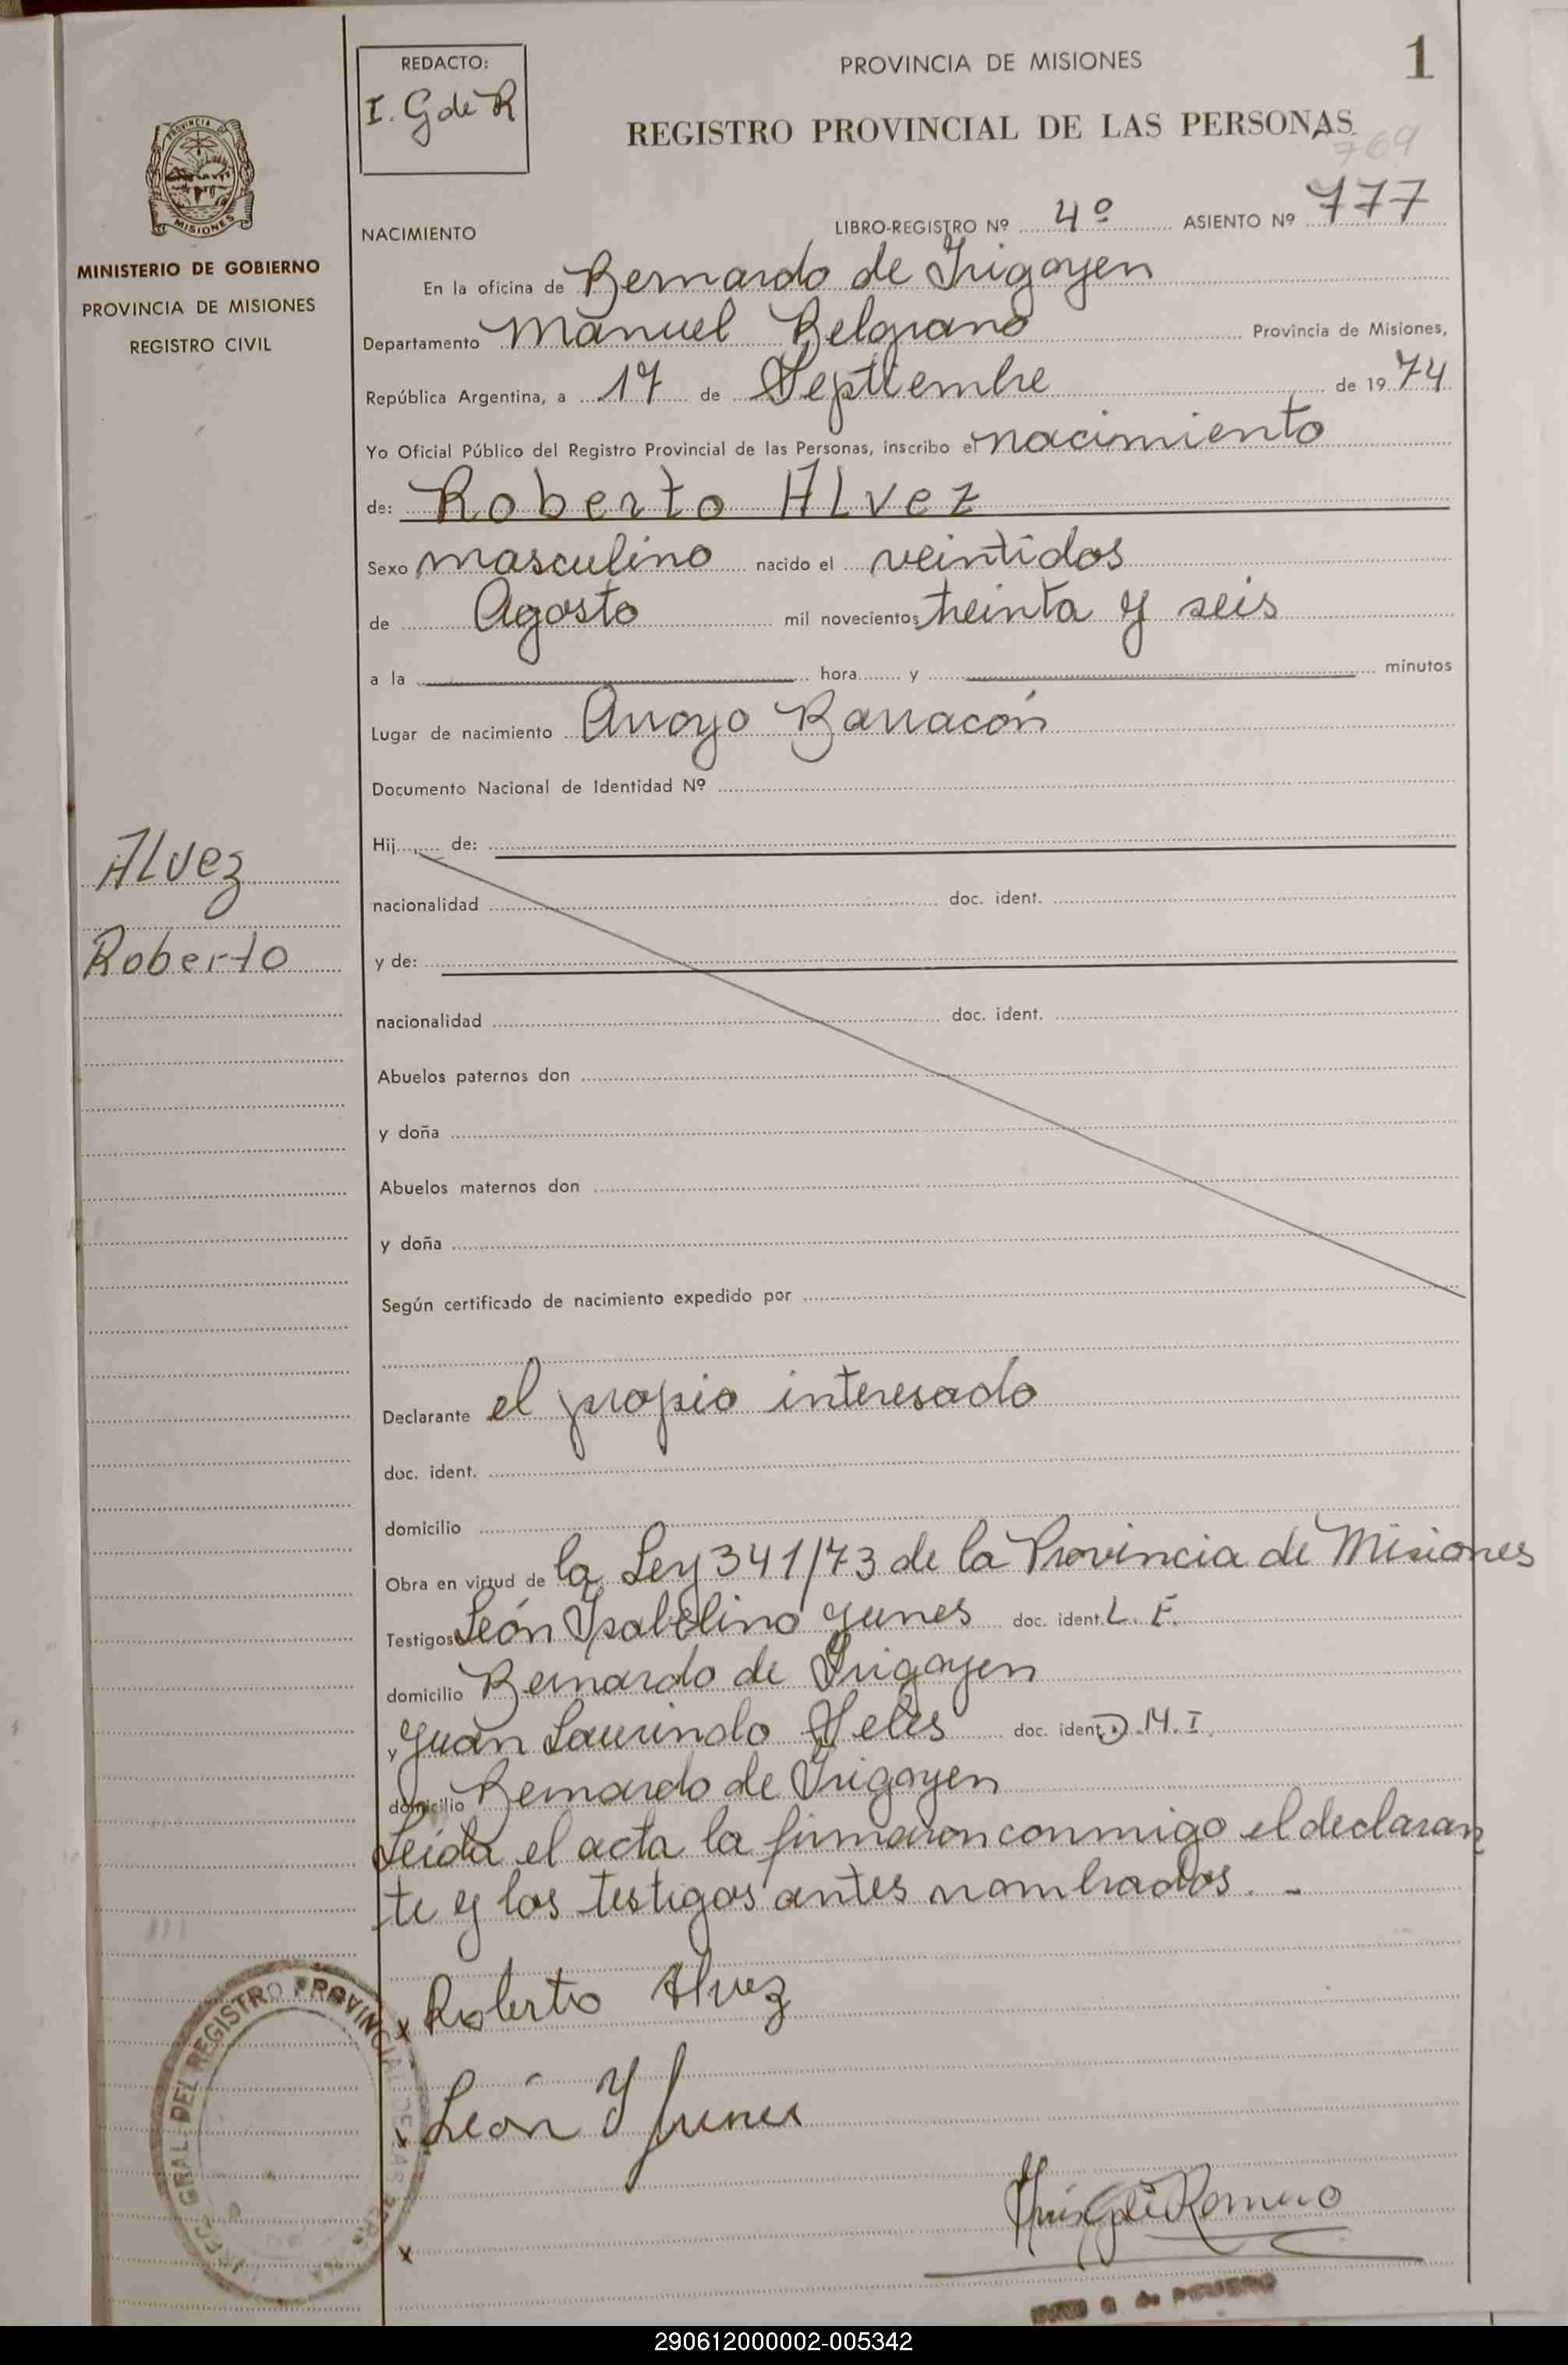 REDACTO:
I. G de R
PROVINCIA DE MISIONES
1
REGISTRO PROVINCIAL DE LAS PERSONAS
769
PROVINCIA DE
MISIONES
MINISTERIO DE GOBIERNO
PROVINCIA DE MISIONES
REGISTRO CIVIL
NACIMIENTO
LIBRO-REGISTRO Nº 4º ASIENTO Nº 777
En la oficina de Bernardo de Irigoyen
Departamento Manuel Belgrano Provincia de Misiones,
República Argentina, a 17 de Septiembre de 1974
Yo Oficial Público del Registro Provincial de las Personas, inscribo el nacimiento
de: Roberto ALvez
Sexo masculino nacido el veintidos
de Agosto mil novecientos treinta y seis
a la hora y minutos
Lugar de nacimiento Arroyo Barracón
Documento Nacional de Identidad Nº
Hij de:
nacionalidad doc. ident.
y de:
nacionalidad doc. ident.
Abuelos paternos don
y doña
Abuelos maternos don
y doña
Según certificado de nacimiento expedido por
ALvez
Roberto
Declarante el propio interesado
doc. ident.
domicilio
Obra en virtud de la Ley 341/73 de la Provincia de Misiones
Testigos León Isabelino Junes doc. ident. L. E.
domicilio Bernardo de Irigoyen
y Juan Laurindo Seles doc. ident. D.M.I.
domicilio Bernardo de Irigoyen
Leida el acta la firmaron conmigo el declaran
te y los testigos antes nombrados. -
x Roberto Alvez
x León Y Junes
x
G de Romero
GRAL. DEL REGISTRO PROVINCIAL DE LAS PERS
290612000002-005342